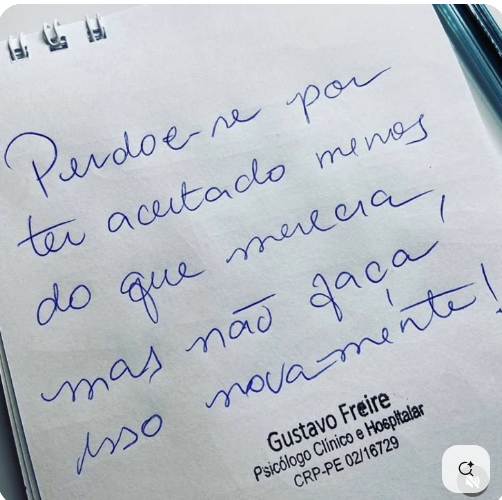 Perdoe-se por
ter aceitado menos
do que merecia,
mas não faça
isso novamente!
Gustavo Freire
Psicólogo Clínico e Hospitalar
CRP-PE 02/16729